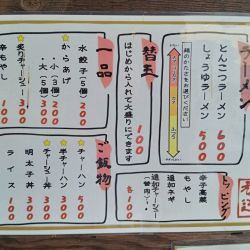 ラーメン
とんこつラーメン 600
しょうゆラーメン 500
麺のかたさをお選びください
替玉
はじめから入れて大盛りにできます 100
トッピング
辛子高菜
もやし
追加ネギ
追加チャーシュー
各100
一品
水餃子(5個) 200
からあげ
・小(3個) 200
・大(5個) 300
炙りチャーシュー 300
辛もやし 100
ご飯物
チャーハン 500
半チャーハン 300
チャーシュー丼 300
明太子丼 300
ライス 100